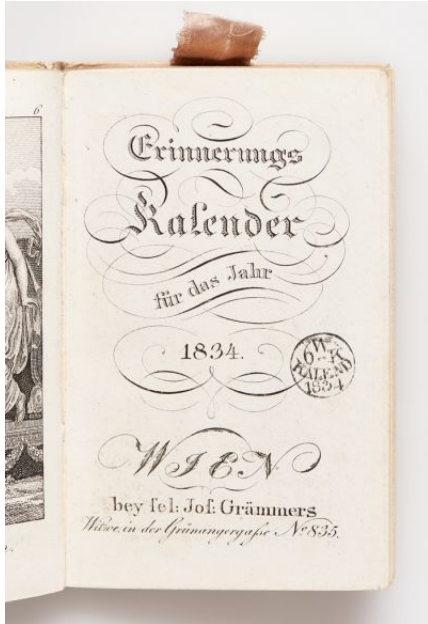 6
Erinnerungs
Kalender
für das Jahr
1834.
6 W K
KALEND
1834
WIEN
bey sel: Jos: Grämmers
Witwe, in der Grünangergasse Nº 835.